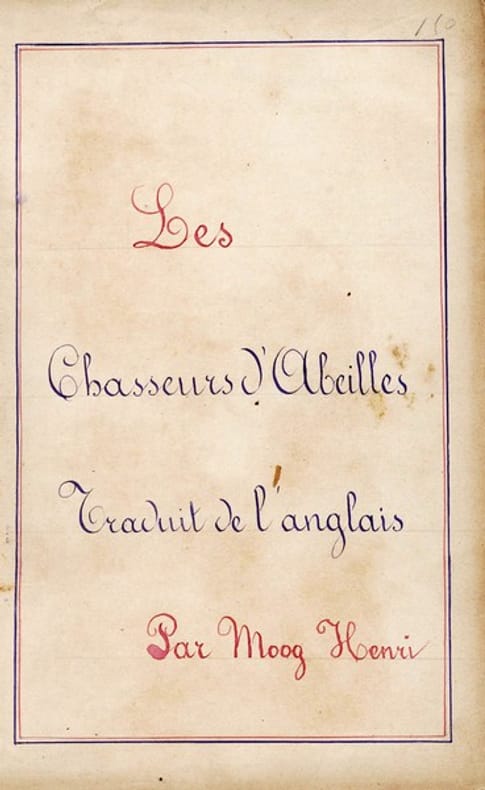 Les
Chasseurs d'Abeilles
Traduit de l'anglais
Par Moog Henri